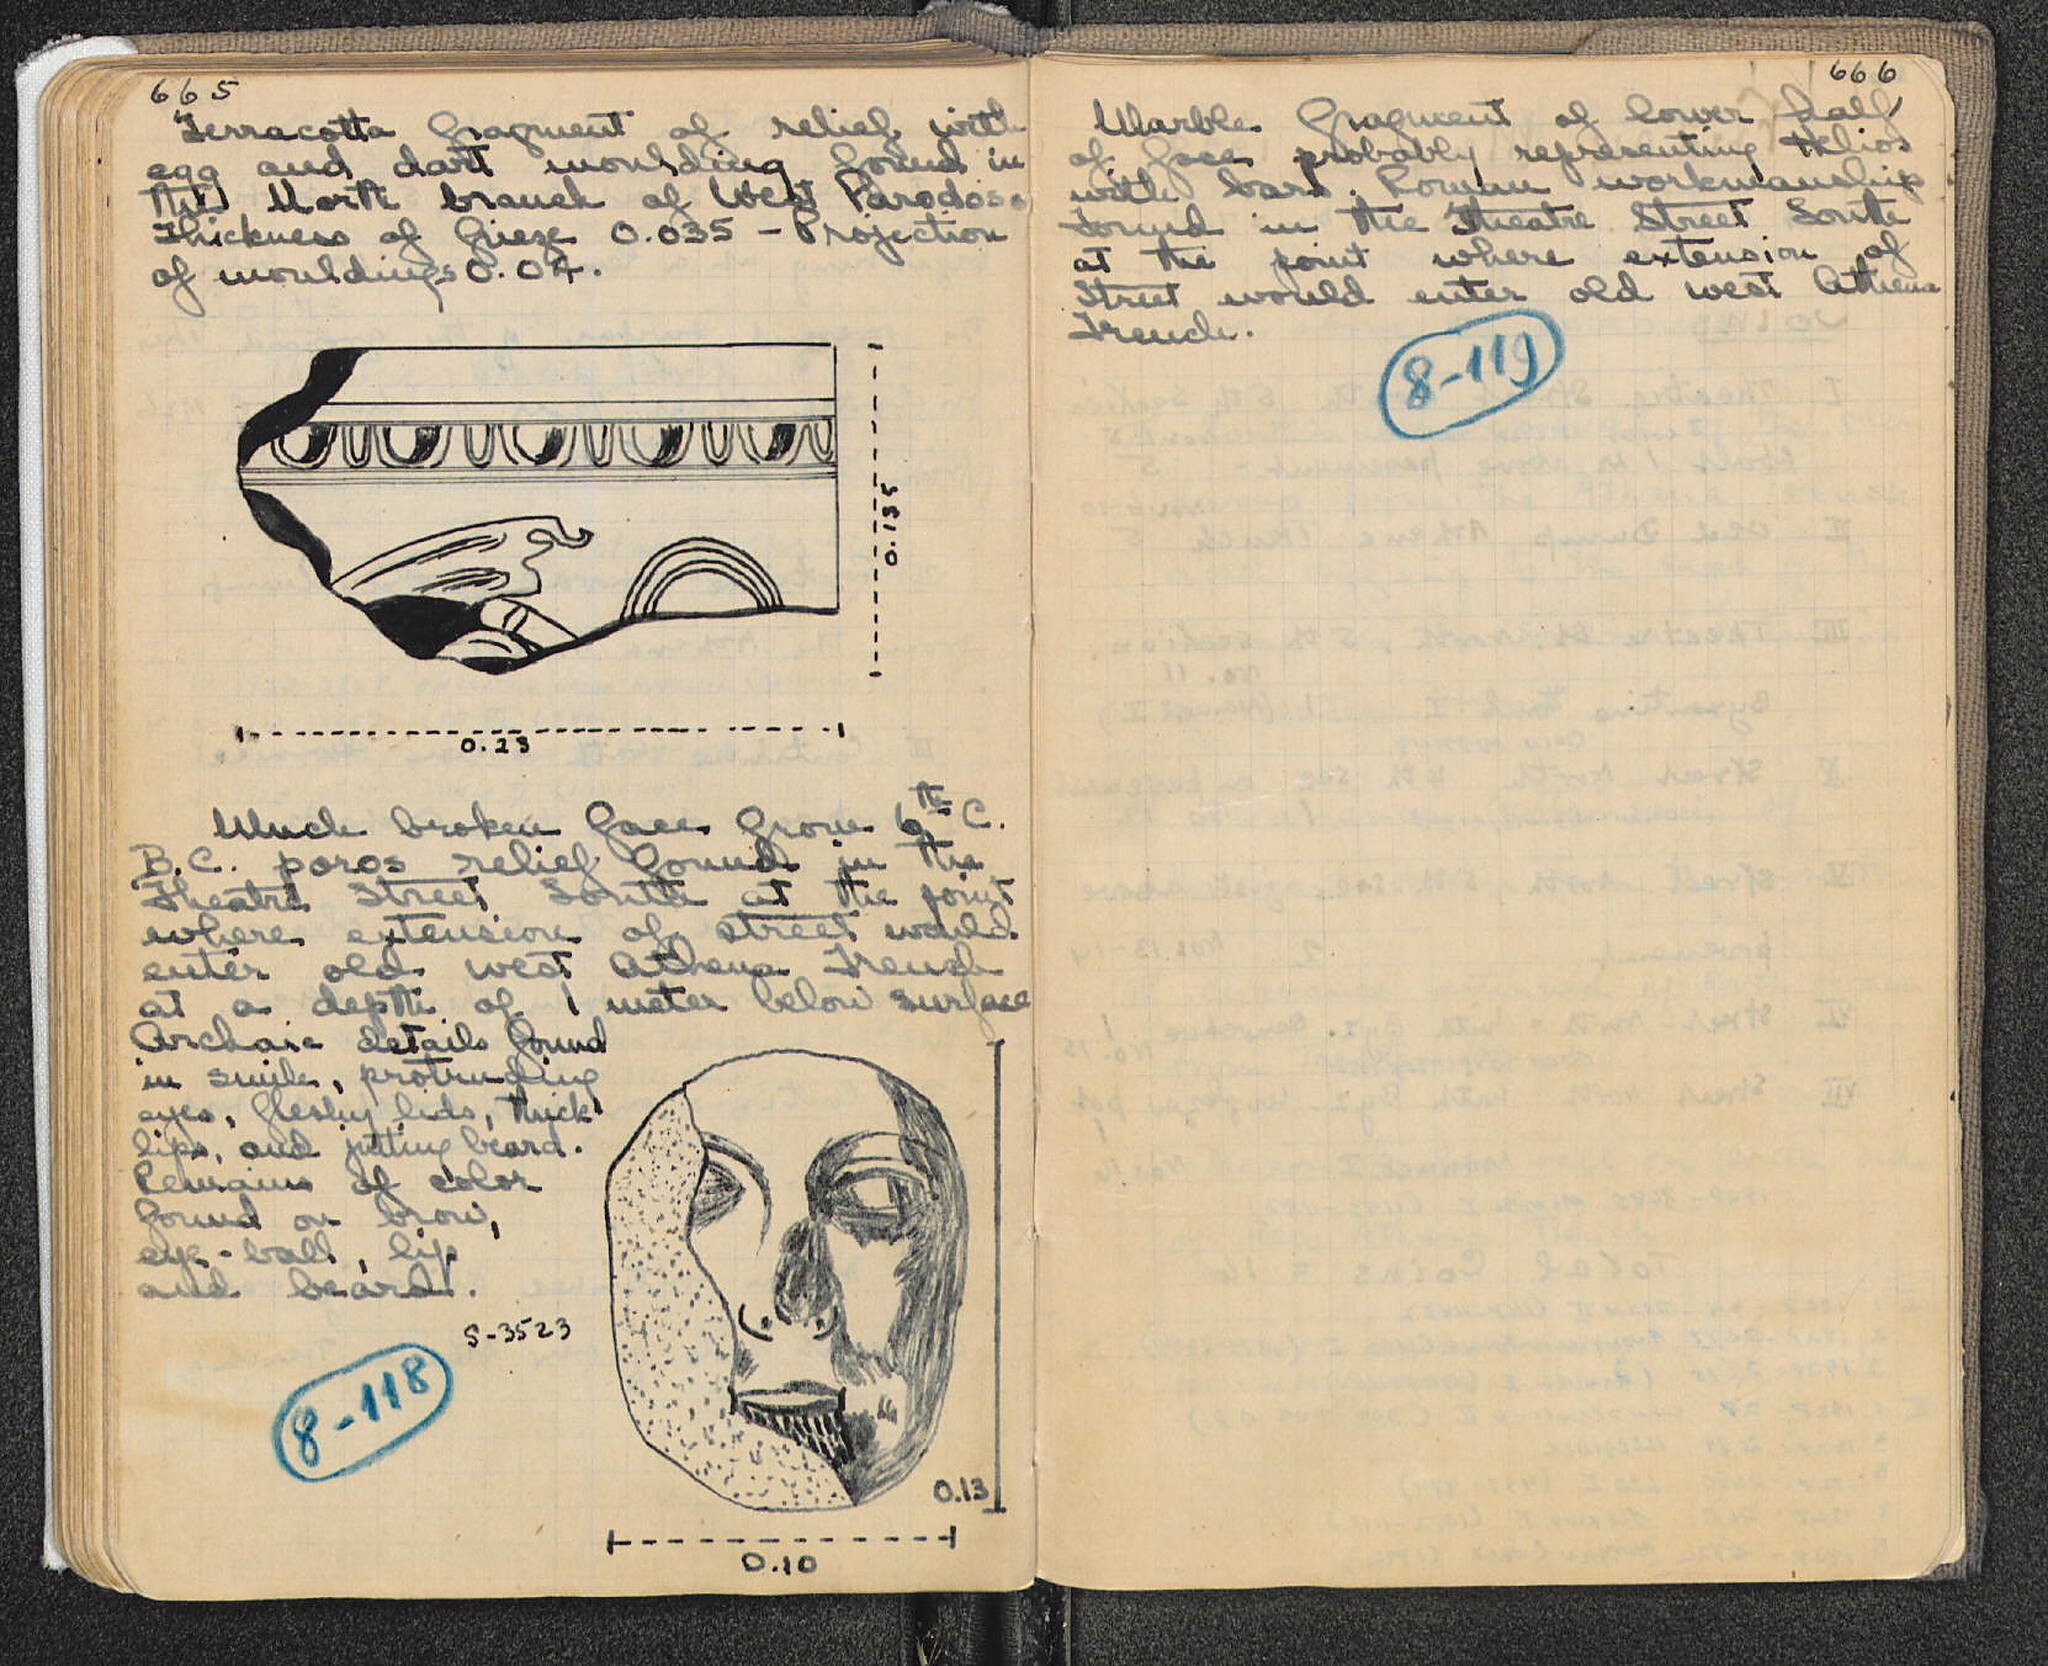 665
Terracotta fragment of relief with
egg and dart moulding found in
the North branch of West Parodos.
Thickness of frieze 0.035 - Projection
of mouldings 0.04.
0.135
0.23
Much broken face from 6th C.
B.C. poros relief found in the
Theatre Street South at the point
where extension of street would
enter old west Athena Trench
at a depth of 1 meter below surface
Archaic details found
in smile, protruding
eyes, fleshy lids, thick
lips, and jutting beard.
Remains of color
found on brow,
eye-ball, lip
and beard.
S-3523
8-118
0.13
0.10
666
Marble fragment of lower half
of face probably representing Helios
with bard. Roman workmanship
Found in the Theatre Street South
at the point where extension of
Street would enter old west Athena
Trench.
8-119